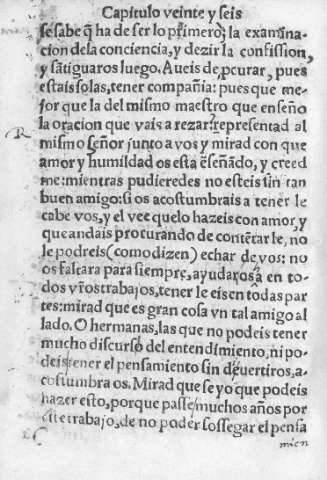 Capitulo veinte y seis
se sabe q̃ ha de ser lo prímero; la examina-
cion de la conciencia, y dezir la confission,
y sãtiguaros luego. A ueis de p̱curar, pues
estais solas, tener compañia: pues que me-
jor que la del mismo maestro que enseño
la oracion que vais a rezar: representad al
R
mismo Señor junto a vos y mirad con que
amor y humildad os esta ẽseñãdo, y creed
me: mientras pudieredes no esteis sin tan
buen amigo: si os acostumbrais a tener le
cabe vos, y el vee que lo hazeis con amor, y
que andais procurando de contẽtar le, no
le podreis (como dizen) echar de vos: no
os faltara para siempre, ayudaros a en to-
dos vr̃os trabajos, tener le eis en todas par
tes: mirad que es gran cosa vn tal amigo al
lado. O hermanas, las que no podeis tener
mucho discurso del entendimiento, ni po-
deis tener el pensamiento sin deuertiros, a-
costumbra os. Mirad que se yo que podeis
hazer esto, porque passe muchos años por
este trabajo, de no poder sossegar el pensa
mien